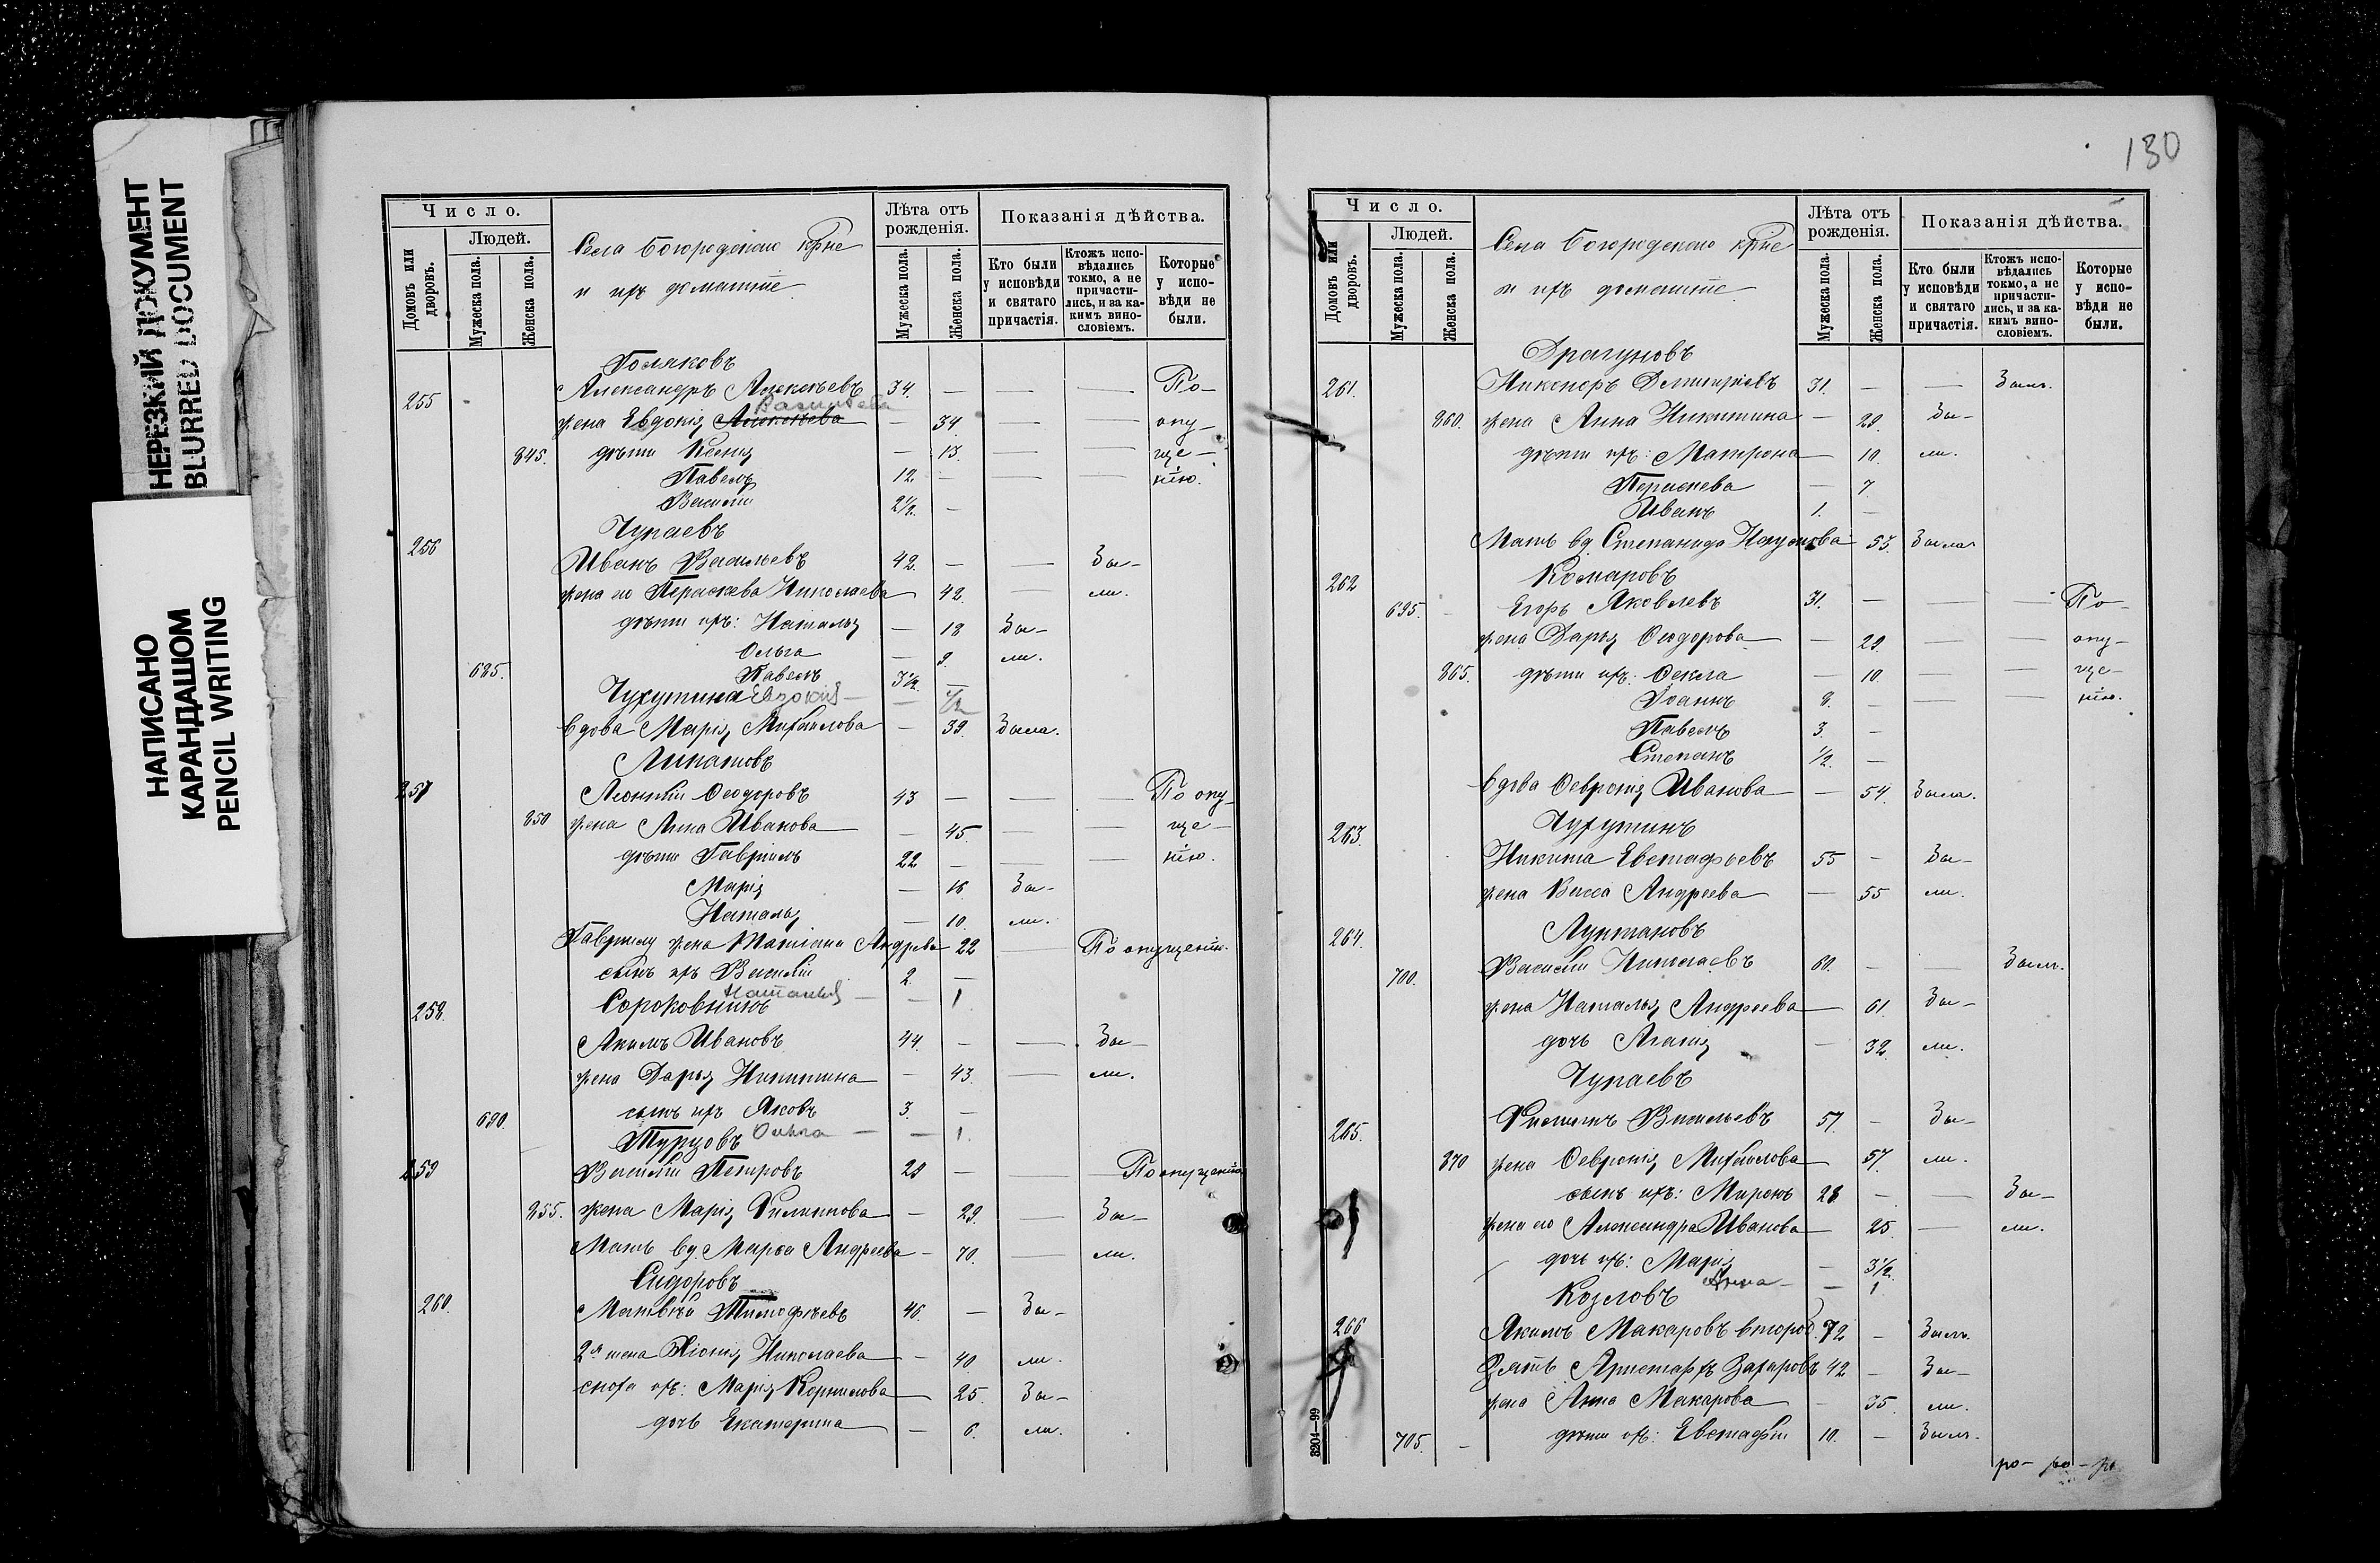 НЕРЕЗКИЙ ДОКУМЕНТ
BLURRED DOCUMENT
НАПИСАНО
КАРАНДАШОМ
PENCIL WRITING
Число.
Людей.
Домовъ или дворовъ.
Мужеска пола.
Женска пола.
Села Богородскаго
и ихъ домашніе
Лѣта отъ рожденія.
Мужеска пола.
Женска пола.
Показанія дѣйства.
Кто были у исповѣди и святаго причастія.
Ктожъ исповѣдались токмо, а не причастились, и за какимъ винословіемъ.
Которые у исповѣди не были.
Голяковъ
255 Александръ Алексѣевъ 34. — — — По-
Васильева
жена Евдокія Алексѣева — 34. — — опу-
845. дѣти Ксенія — 13. — — ще-
Павелъ 12. — — — нію.
Василій 2½. —
Чупаевъ
256 Иванъ Васильевъ 42. — — Бы-
жена его Параскева Николаева — 42. — ли.
дѣти ихъ: Наталья — 18 Бы-
Ольга — 9. ли.
685. Павелъ 3½. —
Чухутина Евдокія — — ½
вдова Марія Михайлова — 39. Была.
Липатовъ
257 Леонтій Ѳеодоровъ 43 — — — По опу-
850 жена Анна Иванова — 45. — — ще-
дѣти Гавріилъ 22 — — — нію.
Марія — 16. Бы-
Наталья — 10. ли.
Гавріилу жена Татіана Андреева 22 — По опущенію.
сынъ ихъ Василій 2. —
Наталья — — 1
258. Сороковнинъ
Акимъ Ивановъ 44. — — Бы-
жена Дарья Никитина — 43. — ли.
690. сынъ ихъ Яковъ 3. —
Турцовъ Ольга — — 1.
259 Василій Петровъ 28 — — По опущенію
855. жена Марія Филиппова — 29. — Бы-
Мать вд. Марѳа Андреева — 70. — ли.
Сидоровъ
260. Матвѣй Тимофѣевъ 46. — Бы-
2я жена Хіонія Николаева — 40. ли.
сноха ихъ: Марія Корнилова — 25. Бы-
дочь Екатерина — 6. ли.
130
Число.
Людей.
Домовъ или дворовъ.
Мужеска пола.
Женска пола.
Села Богородскаго
и ихъ домашніе
Лѣта отъ рожденія.
Мужеска пола.
Женска пола.
Показанія дѣйства.
Кто были у исповѣди и святаго причастія.
Ктожъ исповѣдались токмо, а не причастились, и за какимъ винословіемъ.
Которые у исповѣди не были.
Драгуновъ
261. Никоноръ Димитріевъ 31. — — Былъ.
860. жена Анна Никитина — 29. Бы-
дѣти ихъ: Матрона — 10. ли.
Параскева — 7
Иванъ 1. —
Мать вд. Степанида — 53. Была
262 Комаровъ
695. Егоръ Яковлевъ 31. — — — По-
жена Дарья Ѳеодорова — 29. — опу-
865. дѣти ихъ: Ѳекла — 10. — — ще-
Іоаннъ 8. — — — нію.
Павелъ 3. —
Степанъ ½. —
вдова Ѳевронія Иванова — 54. Была.
Чухутинъ
263. Никита Евстафьевъ 55 — Бы-
жена Васса Андреева — 55 ли.
Луптаковъ
264. Василій Николаевъ 60. — — Былъ.
700.
жена Наталья Андреева — 61. Бы-
дочь Агапія — 32. ли.
Чупаевъ
265. Филиппъ Васильевъ 57. — Бы-
870 жена Ѳевронія Михайлова — 57. ли.
сынъ ихъ: Миронъ 28 — — Бы-
жена его Александра Иванова — 25. — ли.
дочь ихъ: Марія — 3½.
Анна — — 1
Козловъ
266 Акимъ Макаровъ второб. 72 — Былъ.
Зять Аристархъ Захаровъ 42 — Бы-
жена Анна Макарова — 35. ли.
705. дѣти ихъ: Евстафій 10. — Былъ.
3204—99